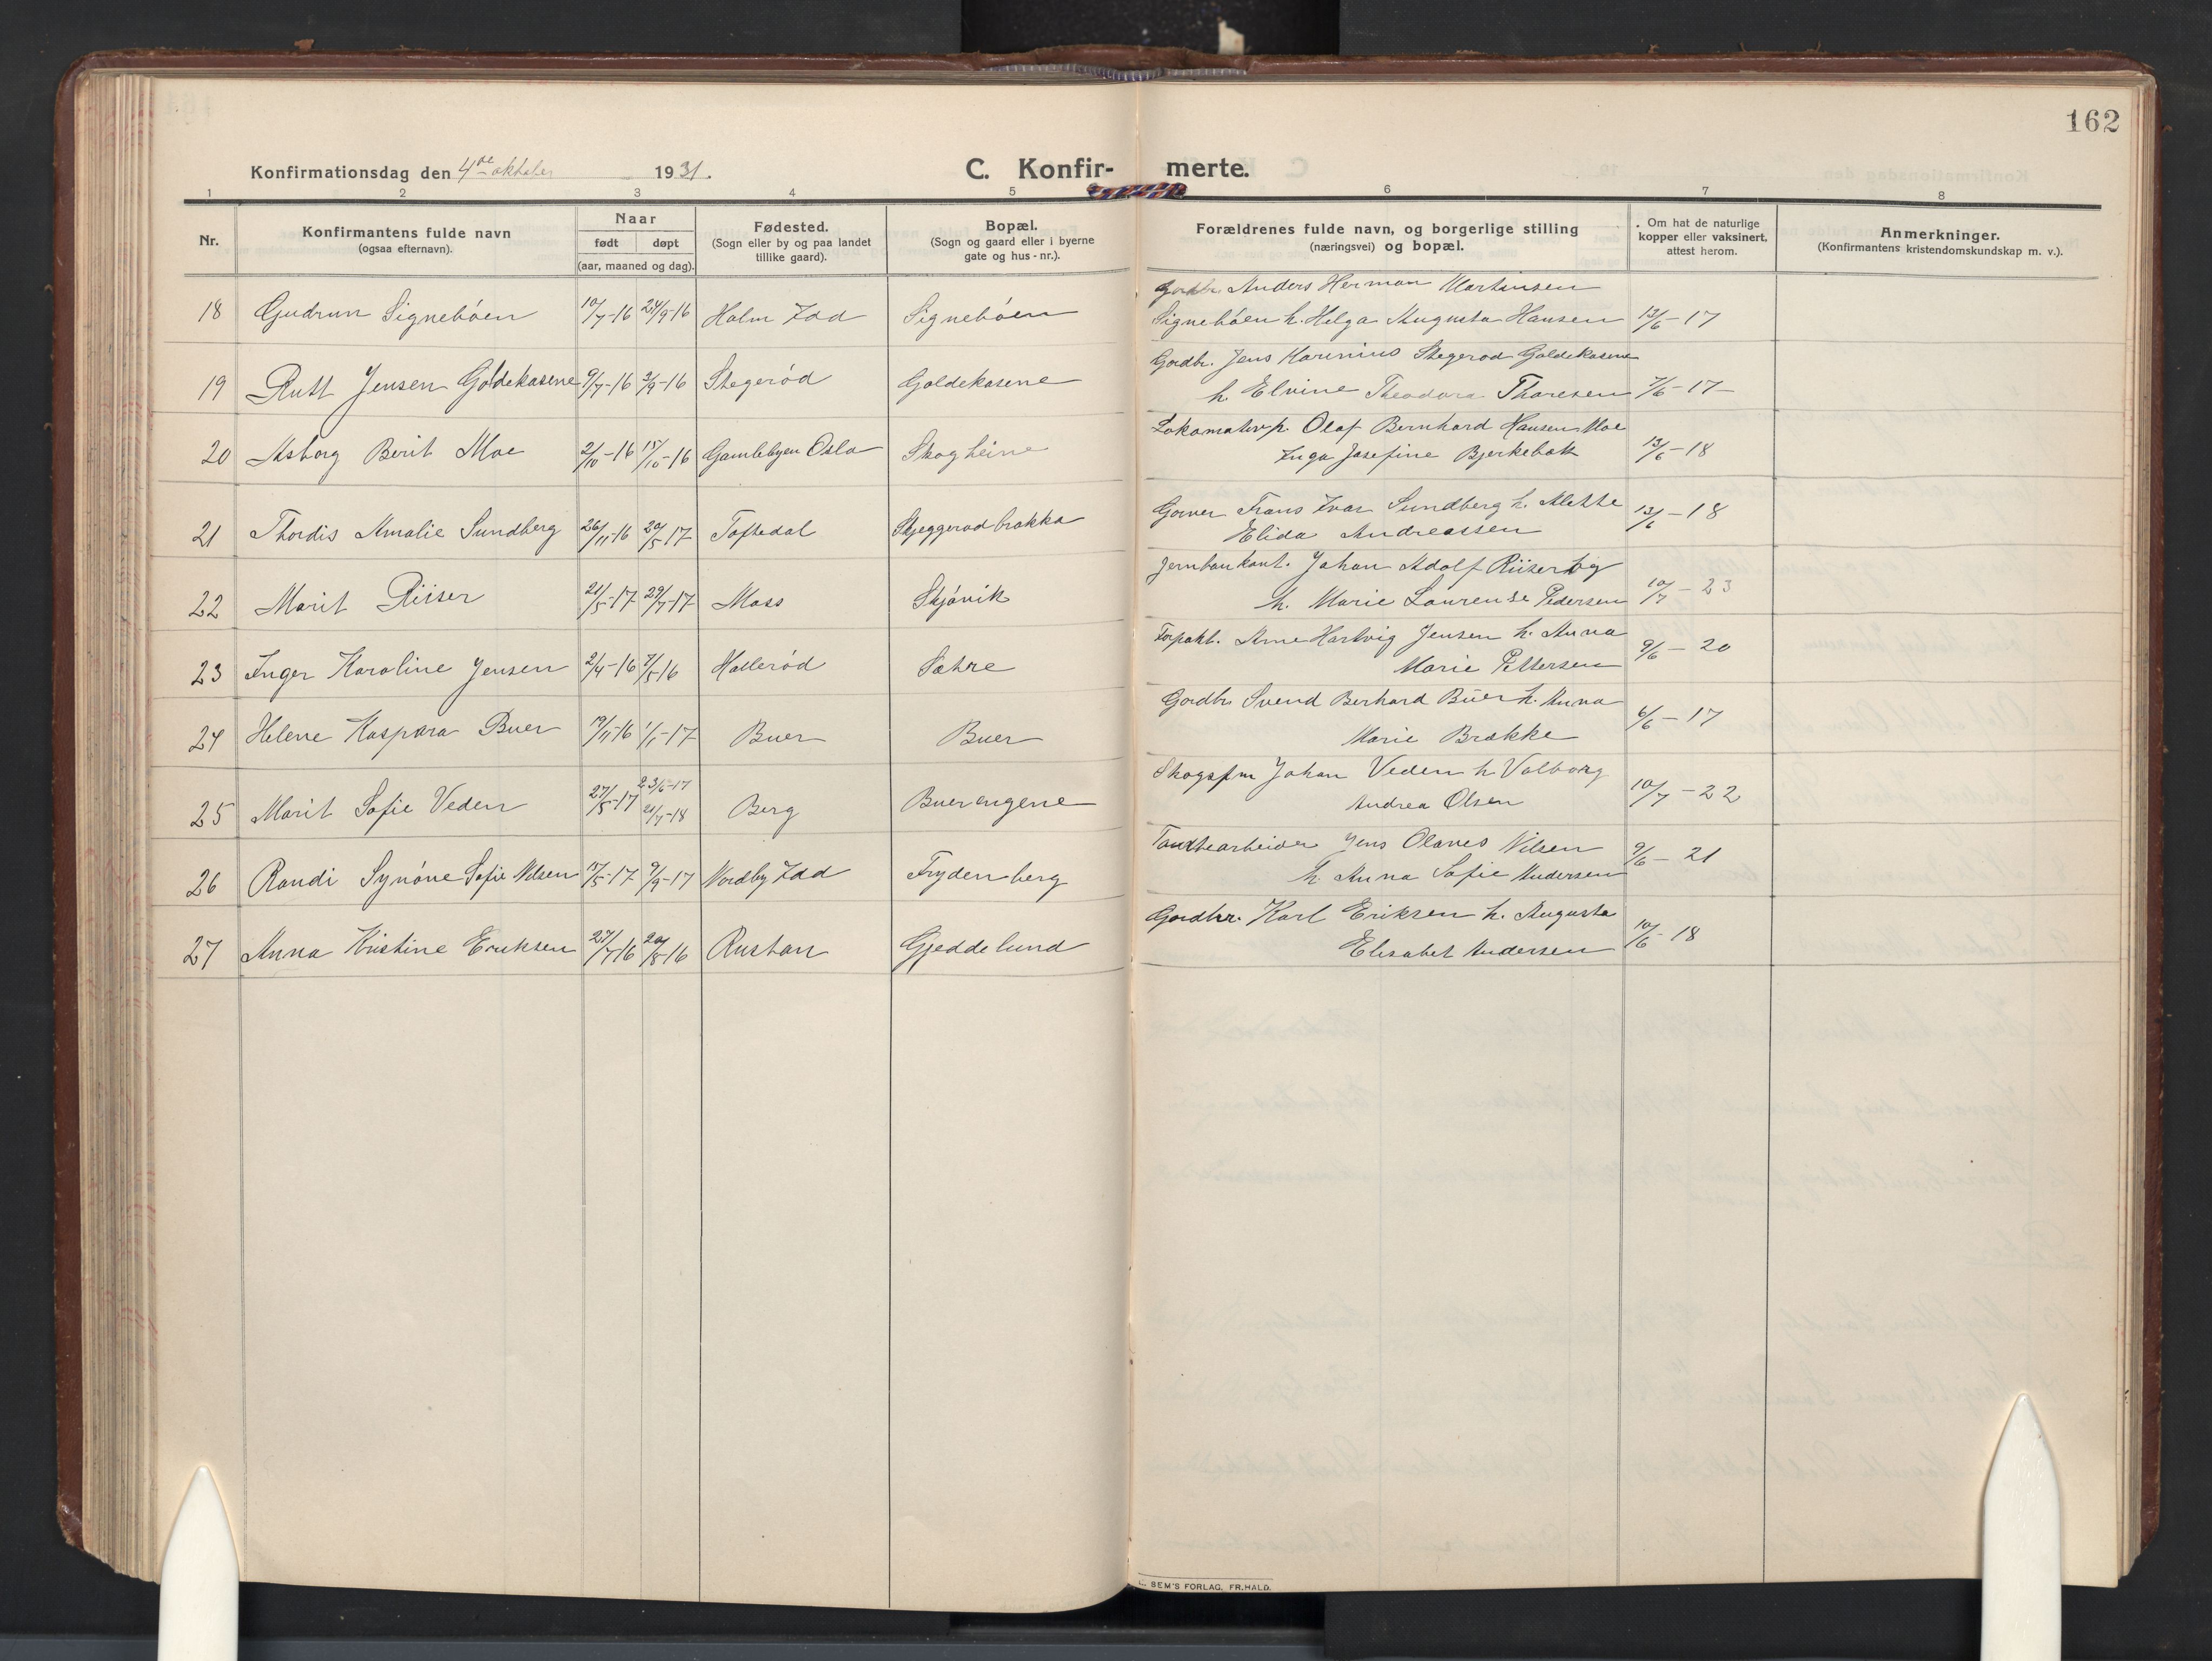 162
Konfirmationsdag den 4de oktober 1931.
C. Konfir- merte.
1 2 3 4 5 6 7 8
Nr.
Konfirmantens fulde navn
(ogsaa efternavn).
Naar
født døpt
(aar, maaned og dag).
Fødested.
(Sogn eller by og paa landet
tillike gaard).
Bopæl.
(Sogn og gaard eller i byerne
gate og hus - nr.).
Forældrenes fulde navn, og borgerlige stilling
(næringsvei) og bopæl.
Om hat de naturlige
kopper eller vaksinert,
attest herom.
Anmerkninger.
(Konfirmantens kristendomskundskap m. v.).
Gardbr. Anders Herman Martinsen
18 Gudrun Signebøen 10/7-16 24/9-16 Holm Idd Signebøen Signebøen h. Helga Augusta Hansen 13/6-17
Gardbr. Jens Karinius Stegerød Goldekasene
19 Rutt Jensen Goldekasene 9/7-16 3/9-16 Stegerød Goldekasene h. Elvine Theodora Thoresen 7/6-17
Lokomotivp. Olaf Bernhard Hansen Moe
20 Asborg Berit Moe 2/10-16 15/10-16 Gamlebyen Oslo Skogheine Inga Josefine Bjerkebæk 13/6-18
Garver Frans Ivar Sundberg h. Alette
21 Thordis Amalie Sundberg 26/11-16 20/5-17 Toftedal Skjeggerødbrækka Elida Andreassen 13/6-18
Jernbankont. Johan Adolf Riiser og
22 Marit Riiser 21/5-17 29/7-17 Moss Skjøvik h. Marie Laurense Pedersen 10/7-23
Forpakt. Arne Hartvig Jensen h. Anna
23 Inger Karoline Jensen 2/4-16 7/5 16 Hallerød Sætre Marie Pettersen 9/6-20
Gardbr. Svend Berhard Buer h. Anna
24 Helene Kaspara Buer 19/11-16 1/1-17 Buer Buer Marie Brække 6/6-17
Skogsfm Johan Veden h. Valborg
25 Marit Sofie Veden 27/5-17 23/6-17 21/7-18 Berg Buerengene Andrea Olsen 10/7-22
Tomtearbeider Jens Olaves Nilsen
26 Randi Synøne Sofie Nilsen 15/5-17 9/9-17 Nordby Idd Frydenberg h. Anna Sofie Andersen 9/6-21
Gardbr. Karl Eriksen h. Augusta
27 Anna Kristine Eriksen 27/7 16 20/8-16 Rustan Gjeddelund Elisabet Andersen 10/6-18
SEM'S FORLAG, FR.HALD.